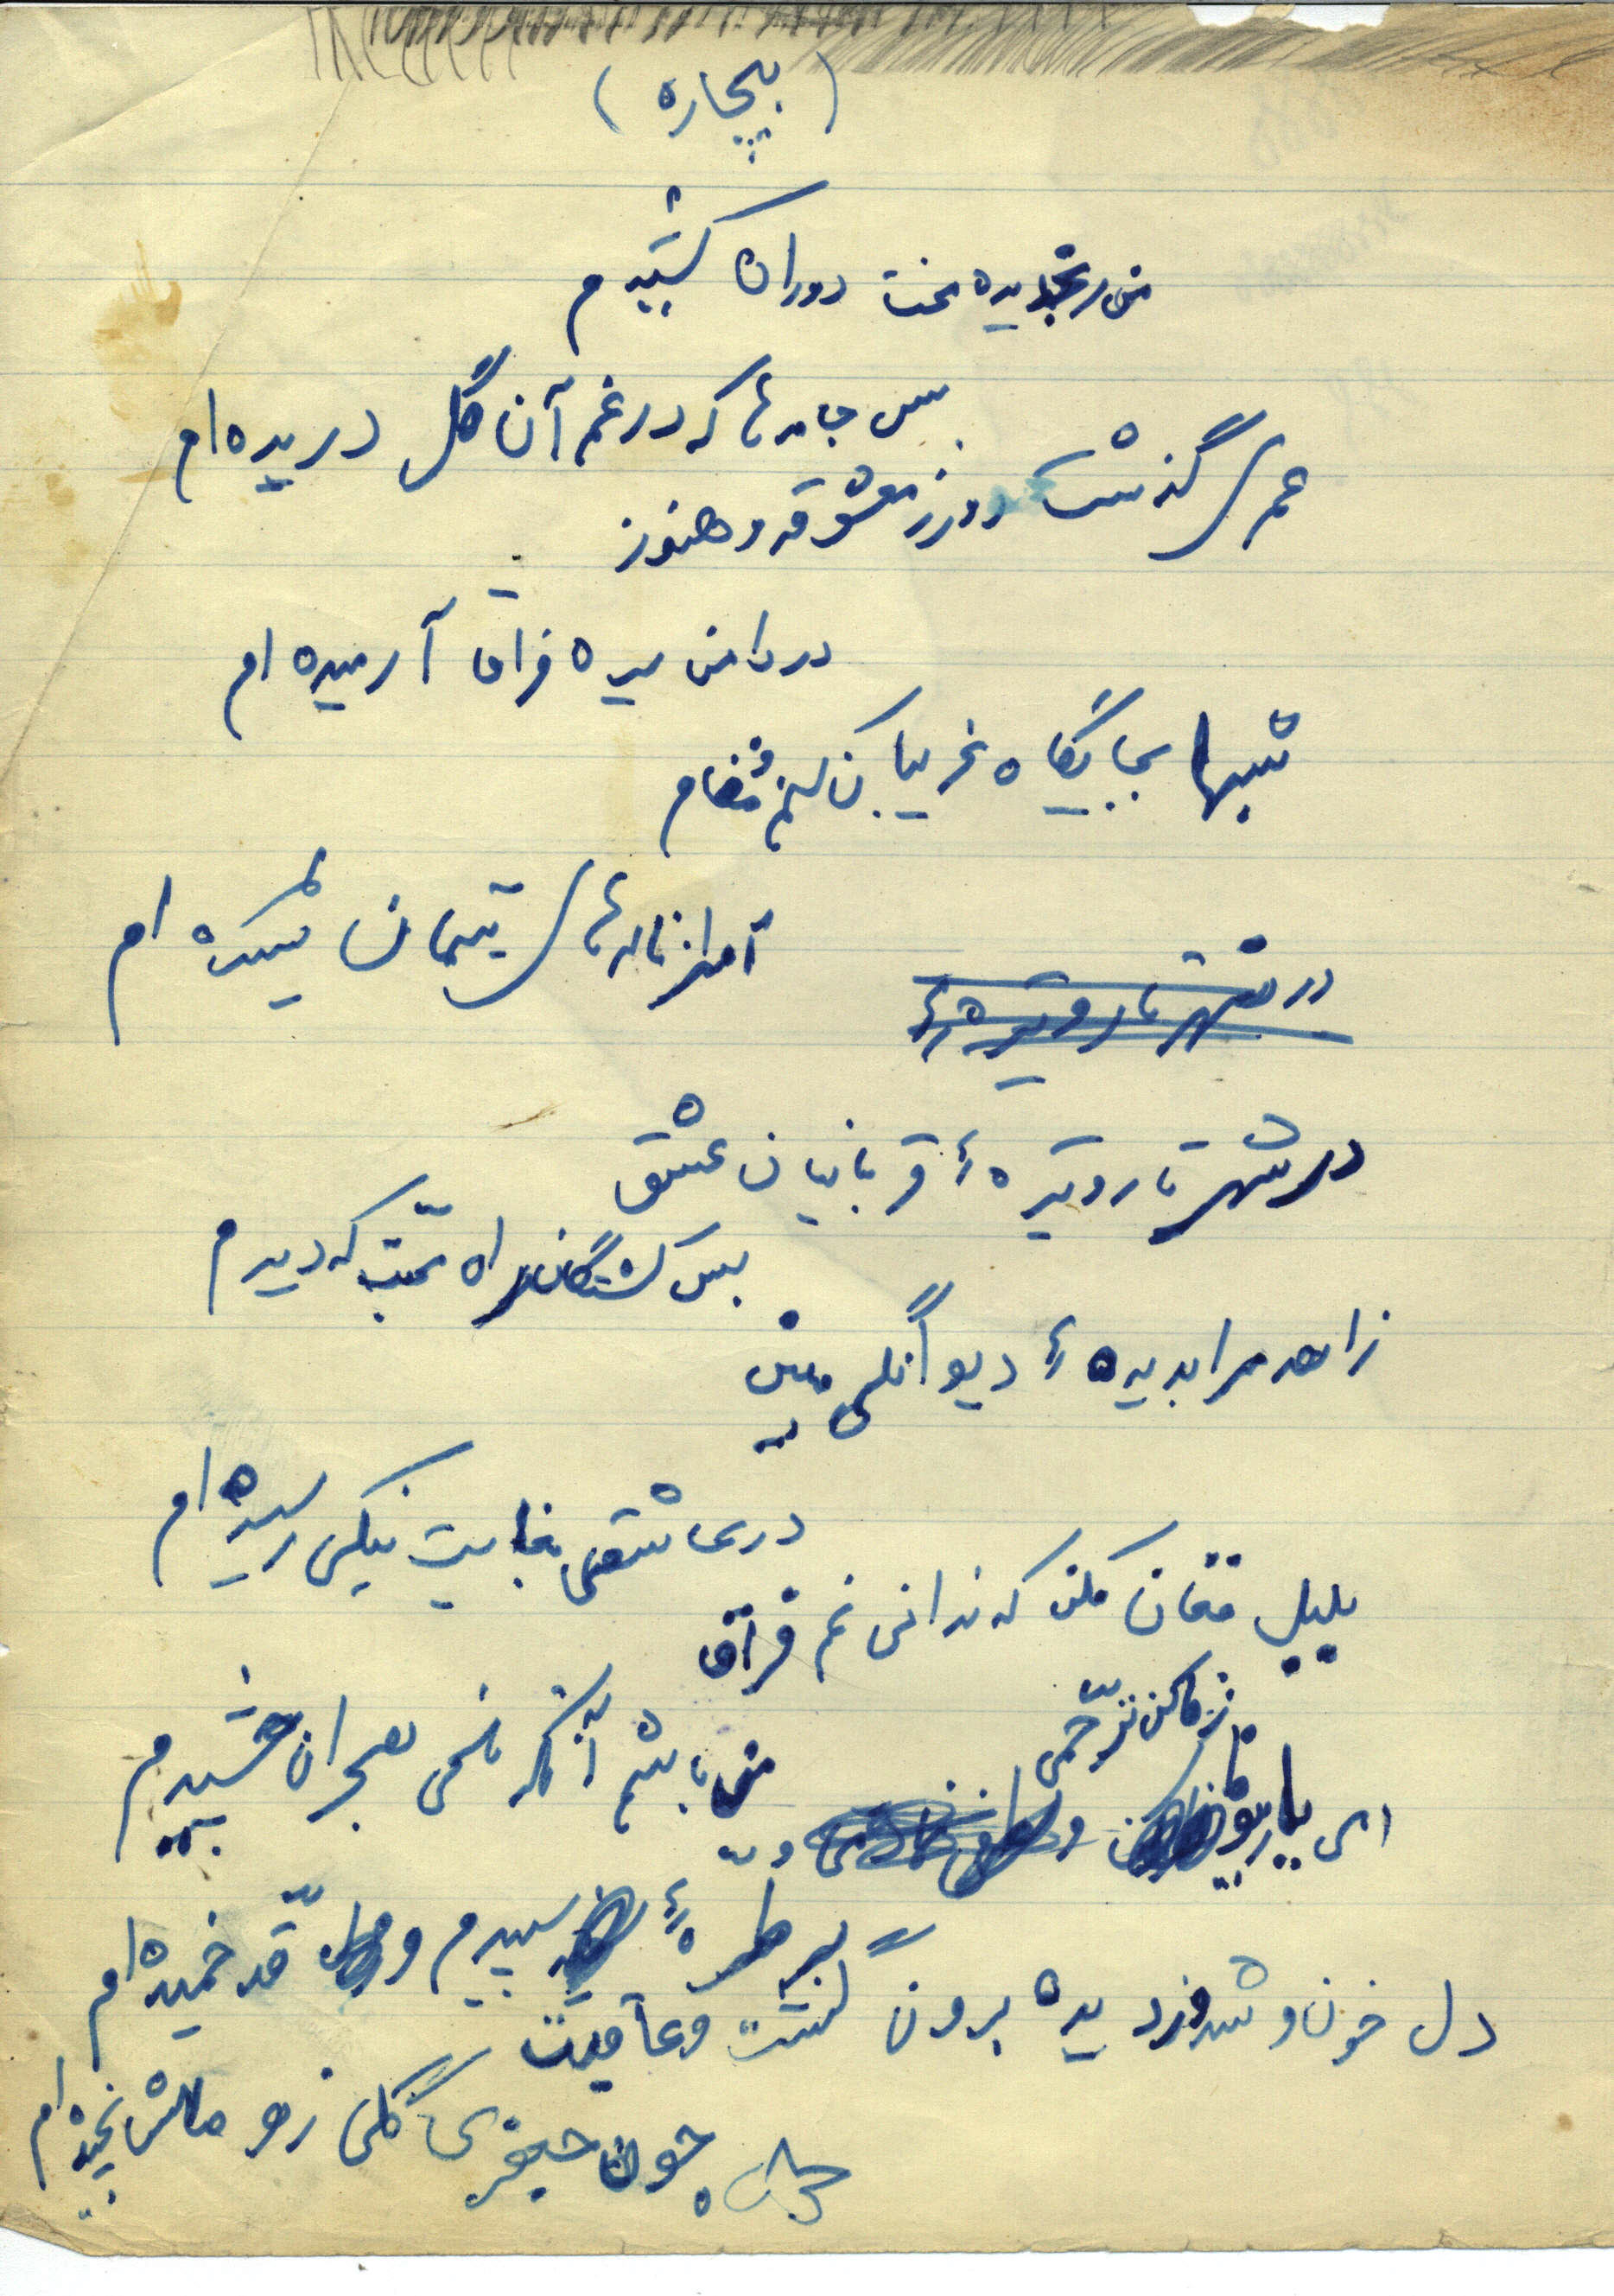 ( بیچاره )
من رنجدیده محنت دوران کشیدم
بس جامه‌ها که در غم آن گل دریده‌ام
عمری گذشت در معشوقه و هنوز
در دامن سیه فراق آرمیده ام
شبها بجایگاه غریبان کنم مقام
آواز ناله‌های یتیمان شنیده ام
در شهر تار و تیره‌ء
در شهر تار و تیره‌ء قربانیان عشق
بس کشتگان راه محبت که دیدم
زاهد مرا بدیدهٔ دیوانگی مبین
در عاشقی بغایت نیکی رسیده ام
بلبل فغان مکن که ندانی غم فراق
ز ما کن ترحمی
من باشم آنکه تلخی هجران چشیدم
ای یار
بر طرهٔ سپیدم و قد خمیده ام
دل خون و شد ز دیده برون گشت و عاقبت
چون جعفری گلی ز وصالش نچیده ام